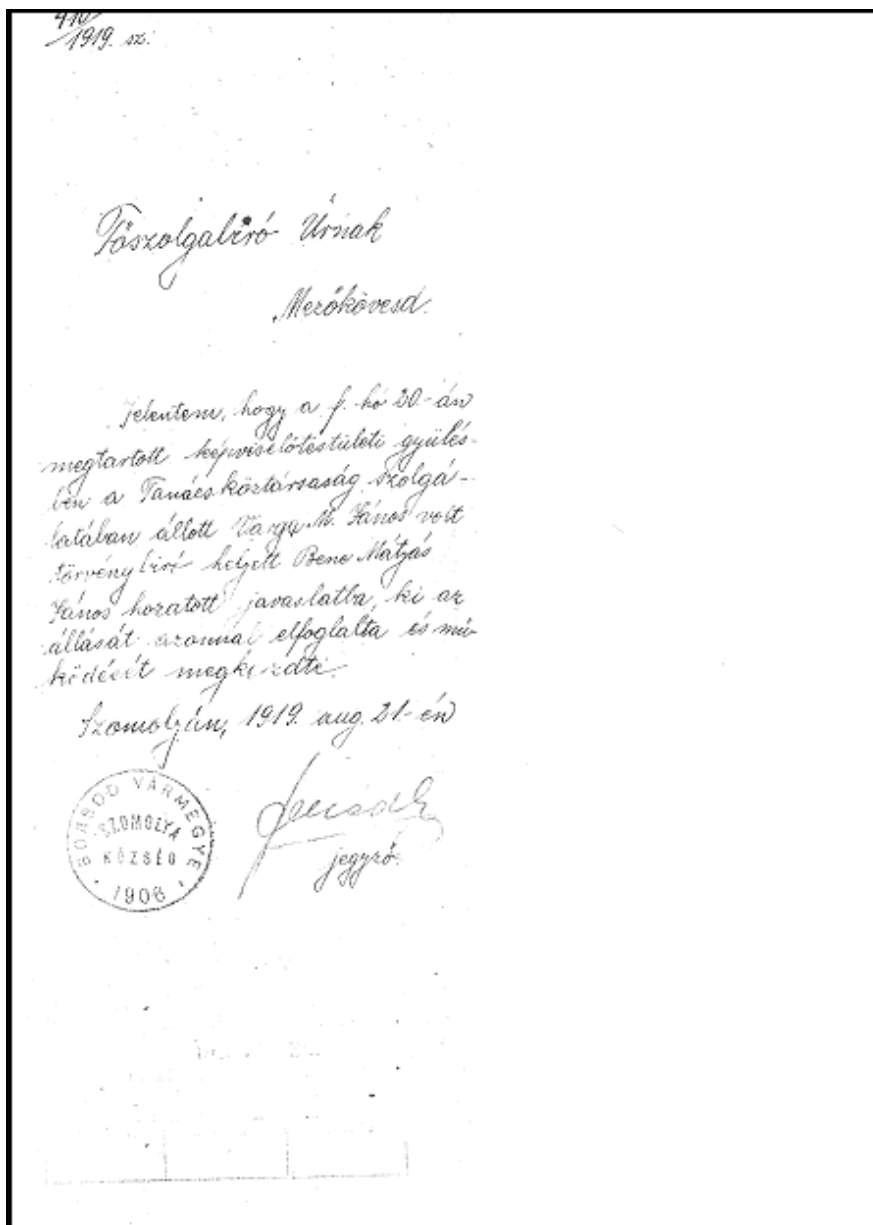 410/1919. sz.
Főszolgabíró Úrnak
Mezőkövesd.
Jelentem, hogy a f. hó 20-án
megtartott képviselőtestületi gyülés-
ben a Tanácsköztársaság szolgá-
latában állott Varga M. János volt
törvénybiró helyett Bene Mátyás
János hozatott javaslatba, ki az
állását azonnal elfoglalta és mü-
ködését megkezdte.
Szomolyán, 1919. aug. 21-én
BORSOD VÁRMEGYE
SZOMOLYA
KÖZSÉG
1906
jegyző.